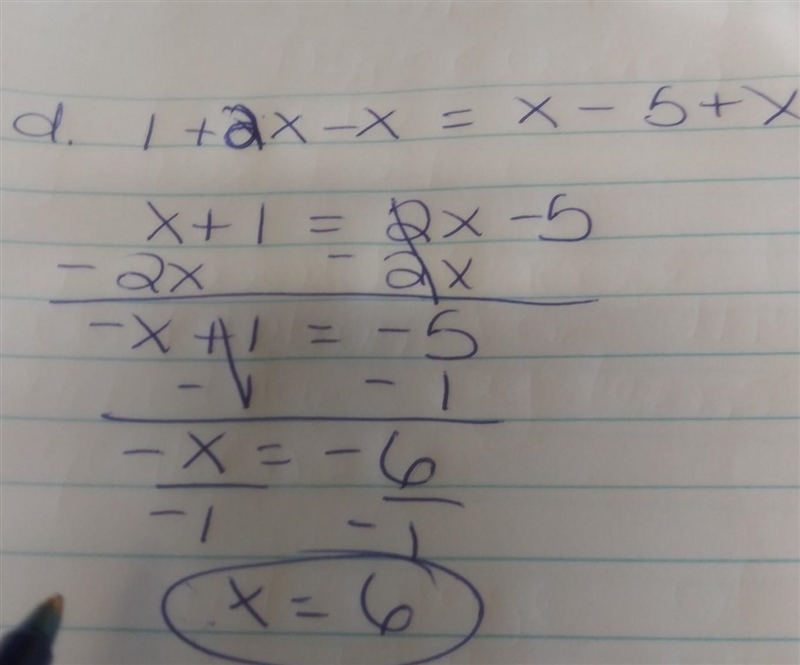 d. 1 + 2x - x = x - 5 + x
x + 1 = 2x - 5
- 2x - 2x
-x + 1 = -5
- 1 - 1
-x = -6
-1 -1
x = 6